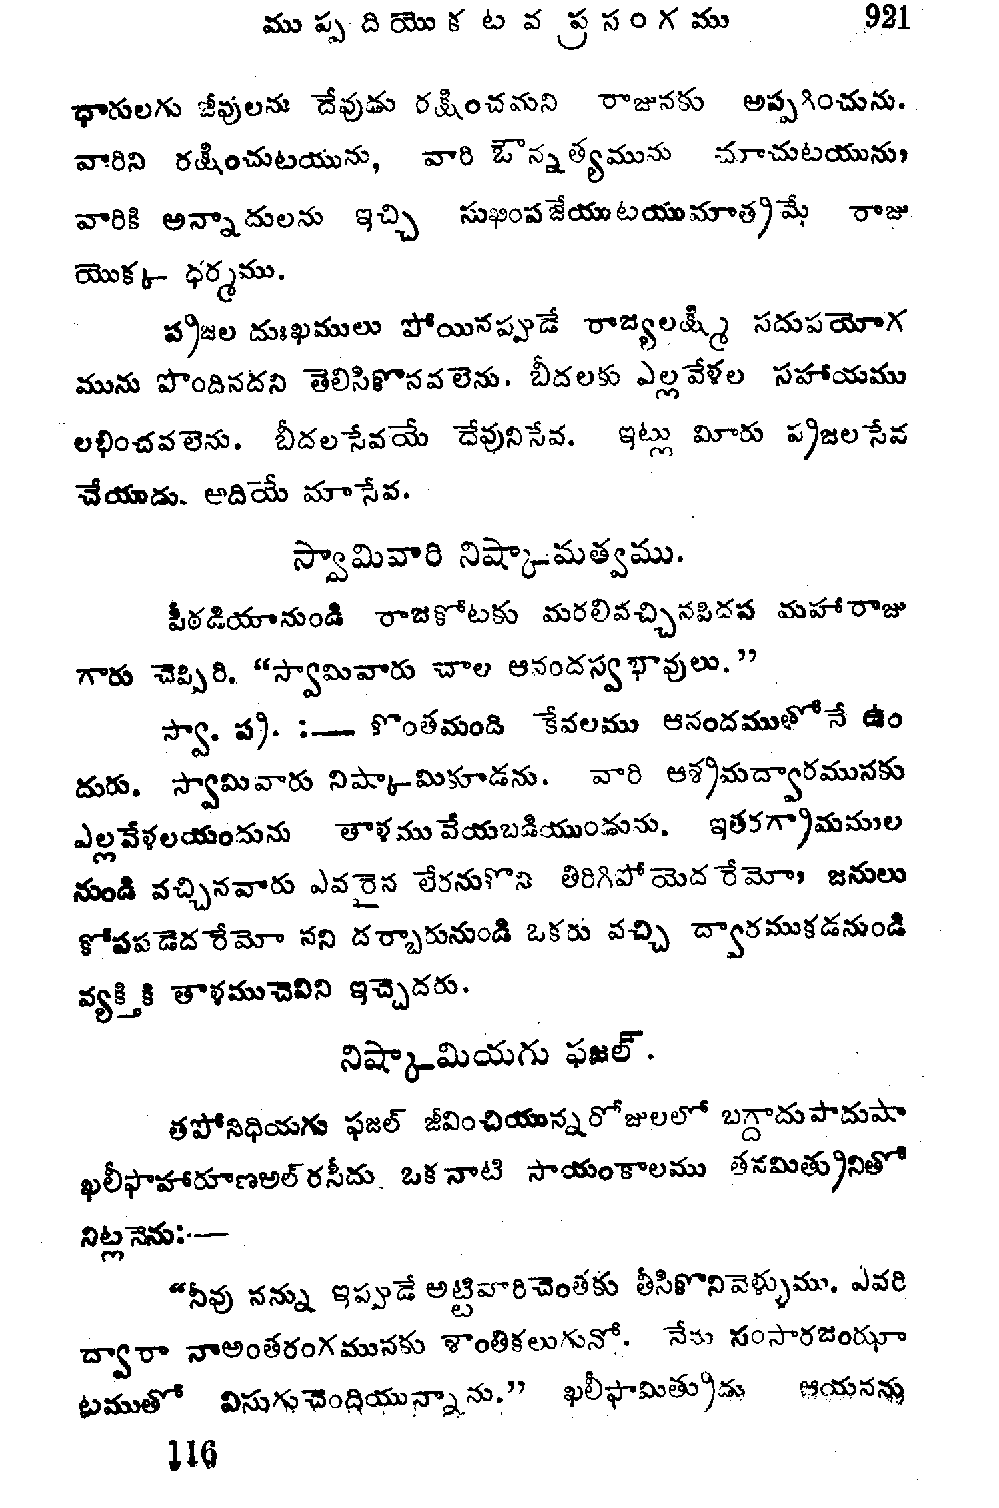 ముప్పదియొకటవ ప్రసంగము 921
ధారులగు జీవులను దేవుడు రక్షించమని రాజునకు అప్పగించును.
వారిని రక్షించుటయును, వారి ఔన్నత్యమును చూచుటయును,
వారికి అన్నాదులను ఇచ్చి సుఖింపజేయుటయుమాత్రమే రాజు
యొక్క ధర్మము.
ప్రజల దుఃఖములు పోయినప్పుడే రాజ్యలక్ష్మి సదుపయోగ
మును పొందినదని తెలిసికొనవలెను. బీదలకు ఎల్లవేళల సహాయము
లభించవలెను. బీదలసేవయే దేవునిసేవ. ఇట్లు మీరు ప్రజలసేవ
చేయుడు. అదియే మాసేవ.
స్వామివారి నిష్కామత్వము.
పీఠడియానుండి రాజకోటకు మరలివచ్చినపిదప మహారాజు
గారు చెప్పిరి. “స్వామివారు చాల ఆనందస్వభావులు.”
స్వా. ప్ర. :— కొంతమంది కేవలము ఆనందముతోనే ఉం
దురు. స్వామివారు నిష్కామికూడను. వారి ఆశ్రమద్వారమునకు
ఎల్లవేళలయందును తాళమువేయబడియుండును. ఇతరగ్రామముల
నుండి వచ్చినవారు ఎవరైన లేరనుకొని తిరిగిపోయెదరేమో, జనులు
కోపపడెదరేమో నని దర్బారునుండి ఒకరు వచ్చి ద్వారముకడనుండి
వ్యక్తికి తాళముచెవిని ఇచ్చెదరు.
నిష్కామియగు ఫజల్.
తపోనిధియగు ఫజల్ జీవించియున్నరోజులలో బగ్దాదుపాదుషా
ఖలీఫాహారూణఅల్‌రసీదు ఒకనాటి సాయంకాలము తనమిత్రునితో
నిట్లనెను:—
“నీవు నన్ను ఇప్పుడే అట్టివారిచెంతకు తీసికొనివెళ్ళుము. ఎవరి
ద్వారా నాఅంతరంగమునకు శాంతికలుగునో. నేను సంసారజంఝా
టముతో విసుగుచెందియున్నాను.” ఖలీఫామిత్రుడు ఆయనను
116